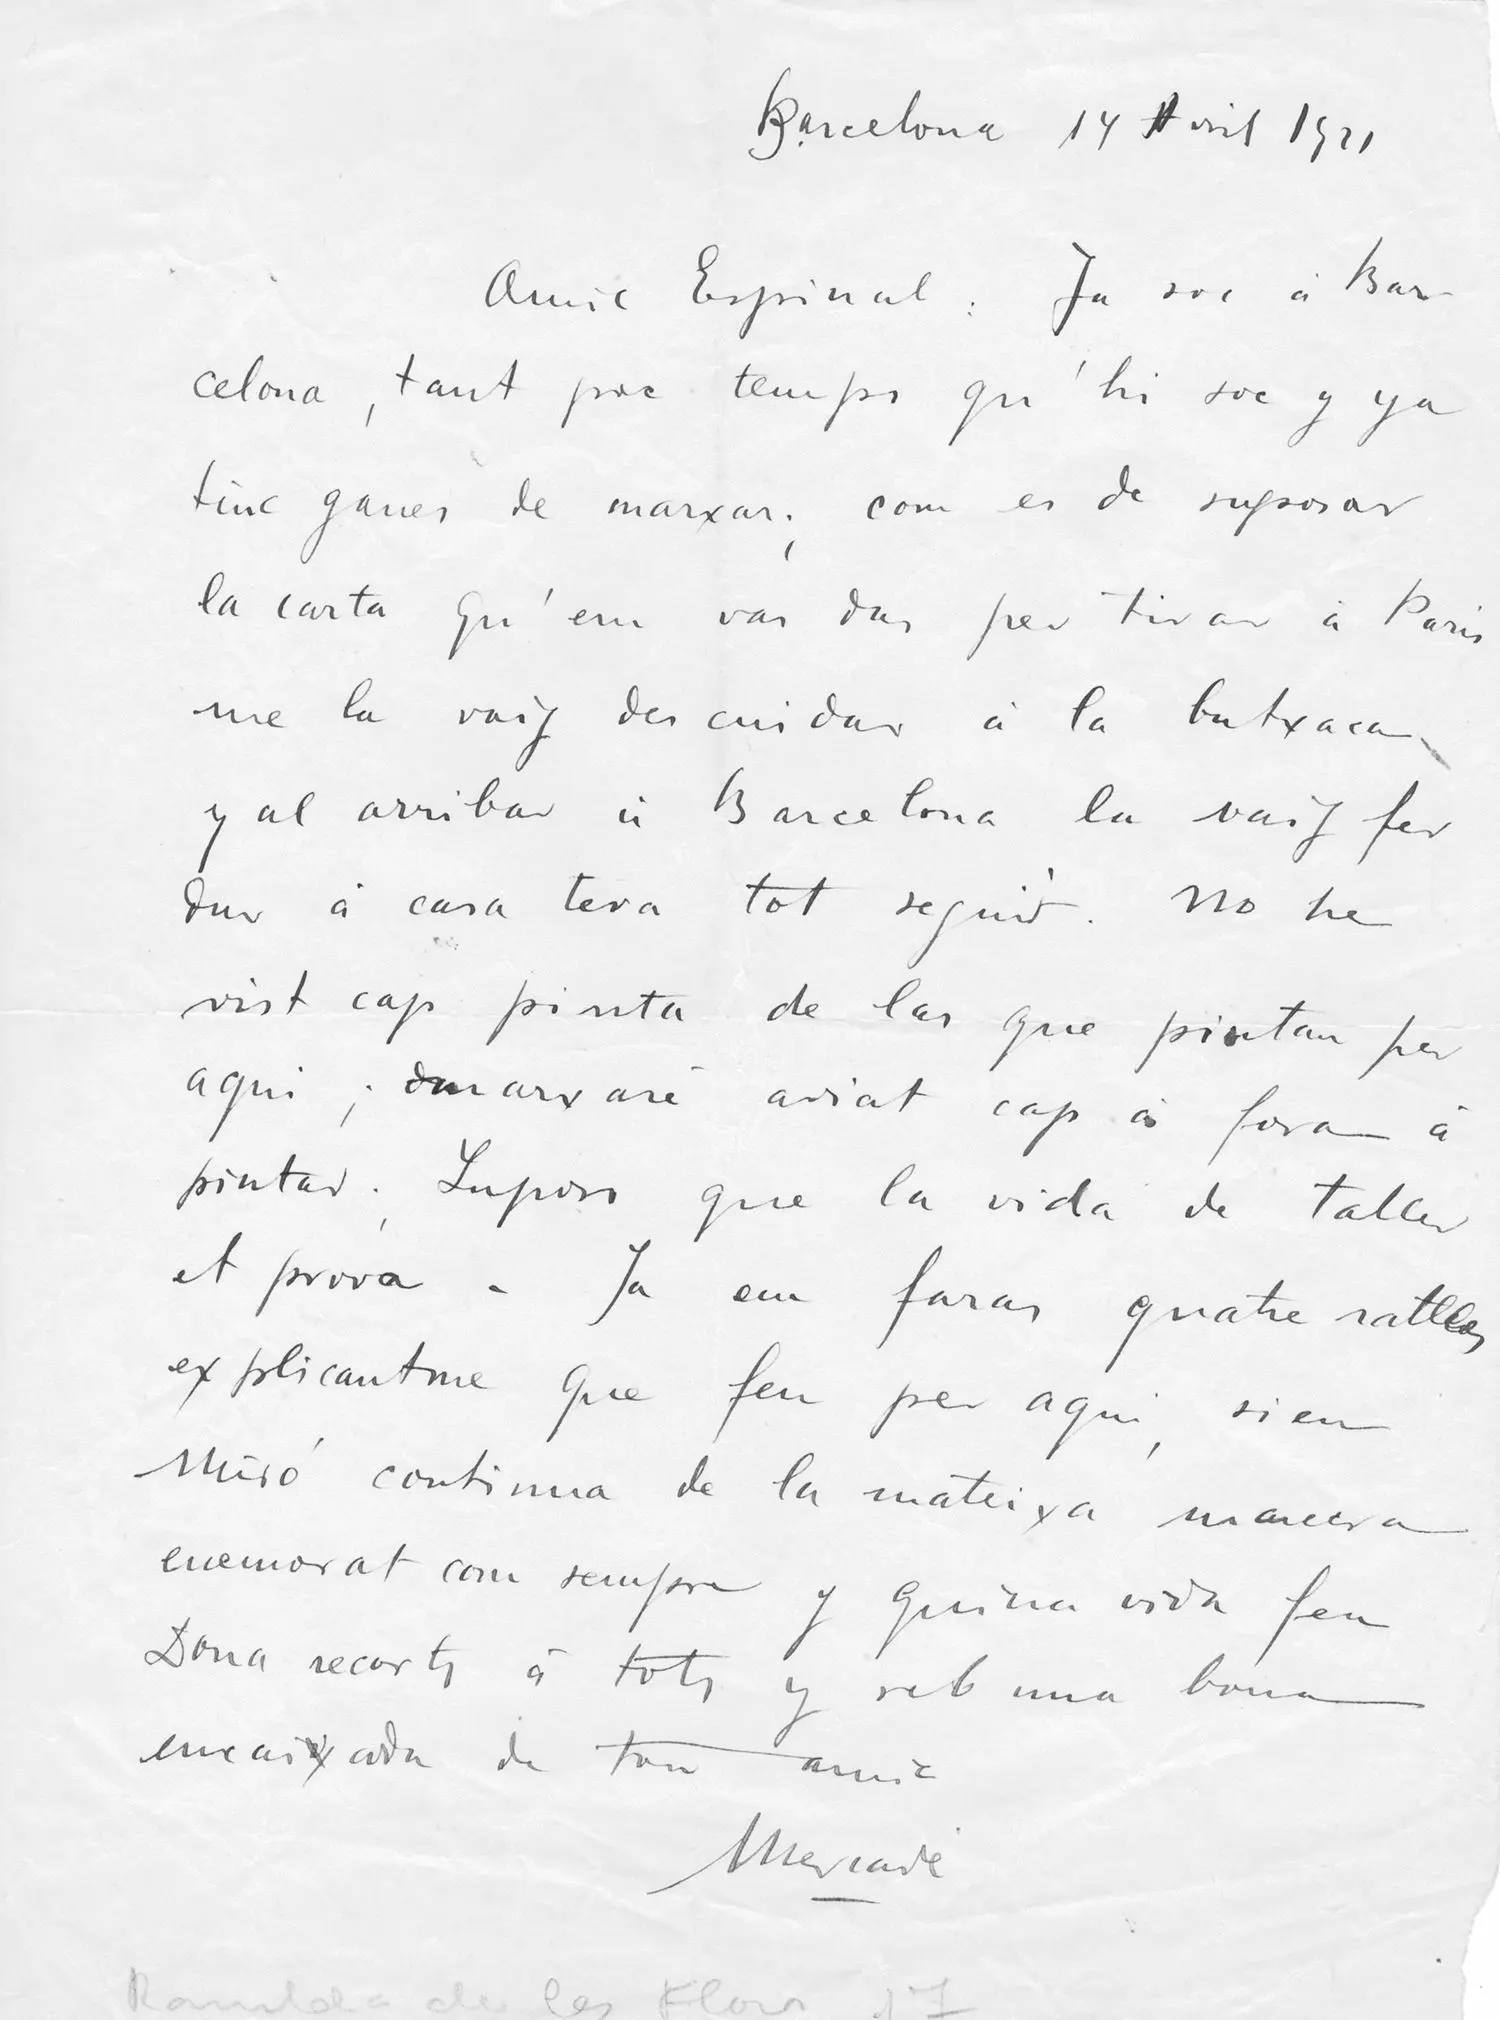 Barcelona 14 Avril 1921
Amic Espinal : Ja soc à Bar
celona, tant poc temps qu'hi soc y ya
tinc ganes de marxar; com es de suposar
la carta qu'em vas dar per tirar à Paris
me la vaig descuidar à la butxaca
y al arribar à Barcelona la vaig fer
dur à casa teva tot seguit. No he
vist cap pinta de las que pintan per
aqui ; marxaré aviat cap à fora à
pintar; Suposo que la vida de taller
et prova - Ja em faras quatre ratlles
explicantme que feu per aqui, si en
Miró continua de la mateixa manera
enemorat com sempre y quina vida feu
Dona recorts à tots y reb una bona
encaixada de ton amic
Mercadé
Rambla de les Flors 17